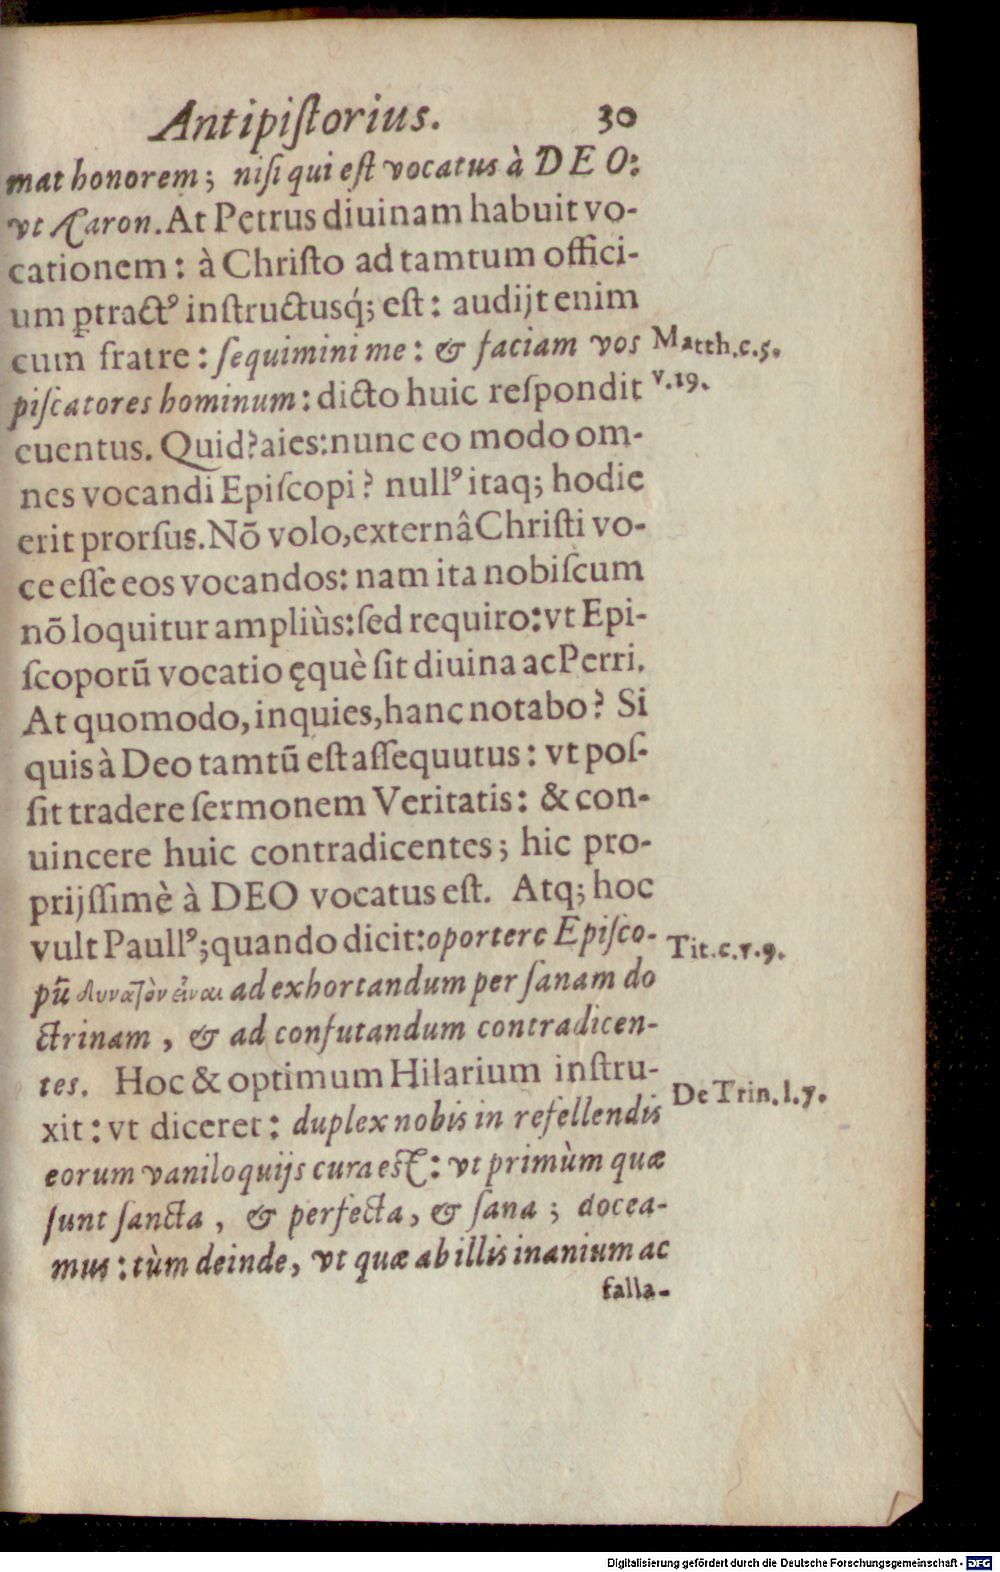 Antipiſtorius. 30
mat honorem; niſi qui eſt vocatus à DEO:
vt Aaron. At Petrus diuinam habuit vo-
cationem: à Chriſto ad tamtum offici-
um ꝑtractꝰ inſtructusq́; eſt: audijt enim
cum fratre: ſequimini me: & faciam vos
Matth.c.5.
piſcatores hominum: dicto huic reſpondit
v.19.
euentus. Quid? aies: nunc eo modo om-
nes vocandi Epiſcopi? nullꝰ itaq; hodie
erit prorſus. Nō volo, externâ Chriſti vo-
ce eſſe eos vocandos: nam ita nobiſcum
nō loquitur ampliùs: ſed requiro: vt Epi-
ſcoporū vocatio ęquè ſit diuina ac Petri.
At quomodo, inquies, hanc notabo? Si
quis à Deo tamtū eſt aſſequutus: vt poſ-
ſit tradere ſermonem Veritatis: & con-
uincere huic contradicentes; hic pro-
prijſſimè à DEO vocatus eſt. Atq; hoc
vult Paullꝰ; quando dicit: oportere Epiſco-
Tit.c.1.9.
pū δυνατὸν εἶναι ad exhortandum per ſanam do
ctrinam, & ad confutandum contradicen-
tes. Hoc & optimum Hilarium inſtru-
De Trin.l.7.
xit: vt diceret: duplex nobis in refellendis
eorum vaniloquijs cura eſt: vt primùm quæ
ſunt ſancta, & perfecta, & ſana; docea-
mus: tùm deinde, vt quæ ab illis inanium ac
falla-
Digitalisierung gefördert durch die Deutsche Forschungsgemeinschaft - DFG